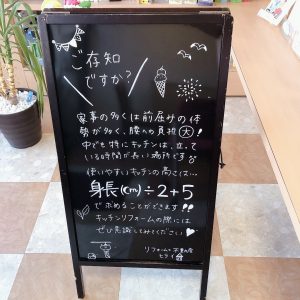 ご存知
ですか?
家事の多くは前屈みの体
勢が多く、腰への負担 大!
中でも特にキッチンは、立って
いる時間が長い場所です。
使いやすいキッチンの高さは…
身長(cm)÷2+5
で求めることができます!!
キッチンリフォームの際には
ぜひ意識してみてください♥
リフォームと不動産
ヒライ